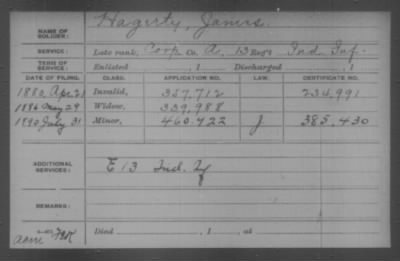 NAME OF SOLDIER: Hagerty, James.
SERVICE: Late rank, Corp Co. A, 13 Reg't Ind. Inf.
TERM OF SERVICE: Enlisted , 1 Discharged , 1
DATE OF FILING. CLASS. APPLICATION NO. LAW. CERTIFICATE NO.
1880 Apr. 21 Invalid, 357,712 234,991
1886 May 29 Widow, 339,988
1890 July 31 Minor, 460,422 J 385,430
ADDITIONAL SERVICES: E 13 Ind. Inf
REMARKS:
Died , 1 , at